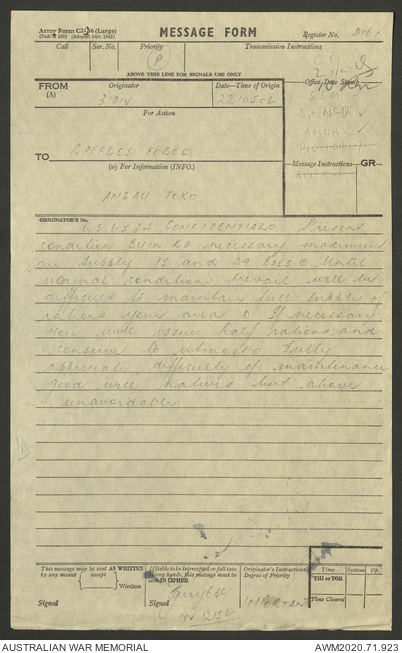 Army Form C2136 (Large)
MESSAGE FORM
Register No.
Call
Ser. No.
Priority
Transmission Instructions
ABOVE THIS LINE FOR SIGNALS USE ONLY
FROM
(A)
Originator
Date—Time of Origin
Office Date Stamp
3 DIV
For Action
TO
RAFFLES FORCE
(w) For Information (INFO.)
Message Instructions
GR
ANGAU TOKO
ORIGINATOR'S No.
CONFIDENTIAL Present
condition BUIN RD necessary maximum
air supply 15 and 29 BDES Until
normal conditions prevail will be
difficult to maintain full supply of
rations your area If necessary
you will issue half rations and
conserve to utmost Fully
appreciate difficulty of maintenance
good will natives but above
unavoidable
This message may be sent AS WRITTEN
by any means (except)
Wireless
If liable to be intercepted or fall into
enemy hands, this message must be
sent IN CIPHER
Originator's Instructions
Degree of Priority
Time
System
Op.
THI or TOR
Time Cleared
Signed
Signed
IMPORTANT
AUSTRALIAN WAR MEMORIAL
AWM2020.71.923